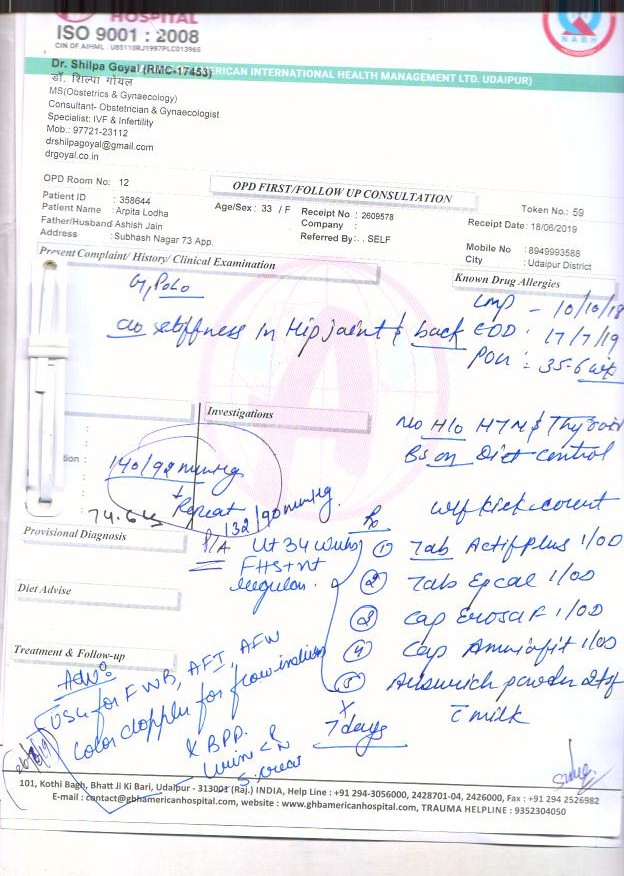 HOSPITAL
ISO 9001 : 2008
CIN OF AIHML : U85110RJ1997PLC013965
NABH
AMERICAN INTERNATIONAL HEALTH MANAGEMENT LTD. UDAIPUR)
Dr. Shilpa Goyal (RMC-17453)
डॉ. शिल्पा गोयल
MS(Obstetrics & Gynaecology)
Consultant- Obstetrician & Gynaecologist
Specialist: IVF & Infertility
Mob.: 97721-23112
drshilpagoyal@gmail.com
drgoyal.co.in
OPD Room No: 12
OPD FIRST/FOLLOW UP CONSULTATION
Token No.: 59
Patient ID : 358644
Age/Sex : 33 / F Receipt No : 2609578
Receipt Date : 18/06/2019
Patient Name : Arpita Lodha
Company :
Father/Husband Ashish Jain
Referred By: . . SELF
Mobile No : 8949993588
Address : Subhash Nagar 73 App.
City : Udaipur District
Present Complaint/ History/ Clinical Examination
Known Drug Allergies
G1P0L0
LMP - 10/10/18
c/o stiffness in Hip joint & back
EDD : 17/7/19
POG : 35-6 wk
Investigations
No H/o HTN & Thyroid
BS on Diet control
140/98 mmHg
Repeat
132/90 mmHg.
74.6 kg
Provisional Diagnosis
P/A Ut 34 wks
FHS + nt
regular.
Diet Advise
Treatment & Follow-up
kick count
① Tab Actifplus 1/OD
② Tab Epcal 1/OD
③ Cap Erosaf 1/OD
④ Cap Amniofit 1/OD
⑤ powder 2tsf
c̄ milk
x
7 days
Adv:
USG for FWB, AFI, AFW
color doppler for flow indices
& BPP.
S. creat
26/6/19
101, Kothi Bagh, Bhatt Ji Ki Bari, Udaipur - 313001 (Raj.) INDIA, Help Line : +91 294-3056000, 2428701-04, 2426000, Fax : +91 294 2526982
E-mail : contact@gbhamericanhospital.com, website : www.ghbamericanhospital.com, TRAUMA HELPLINE : 9352304050